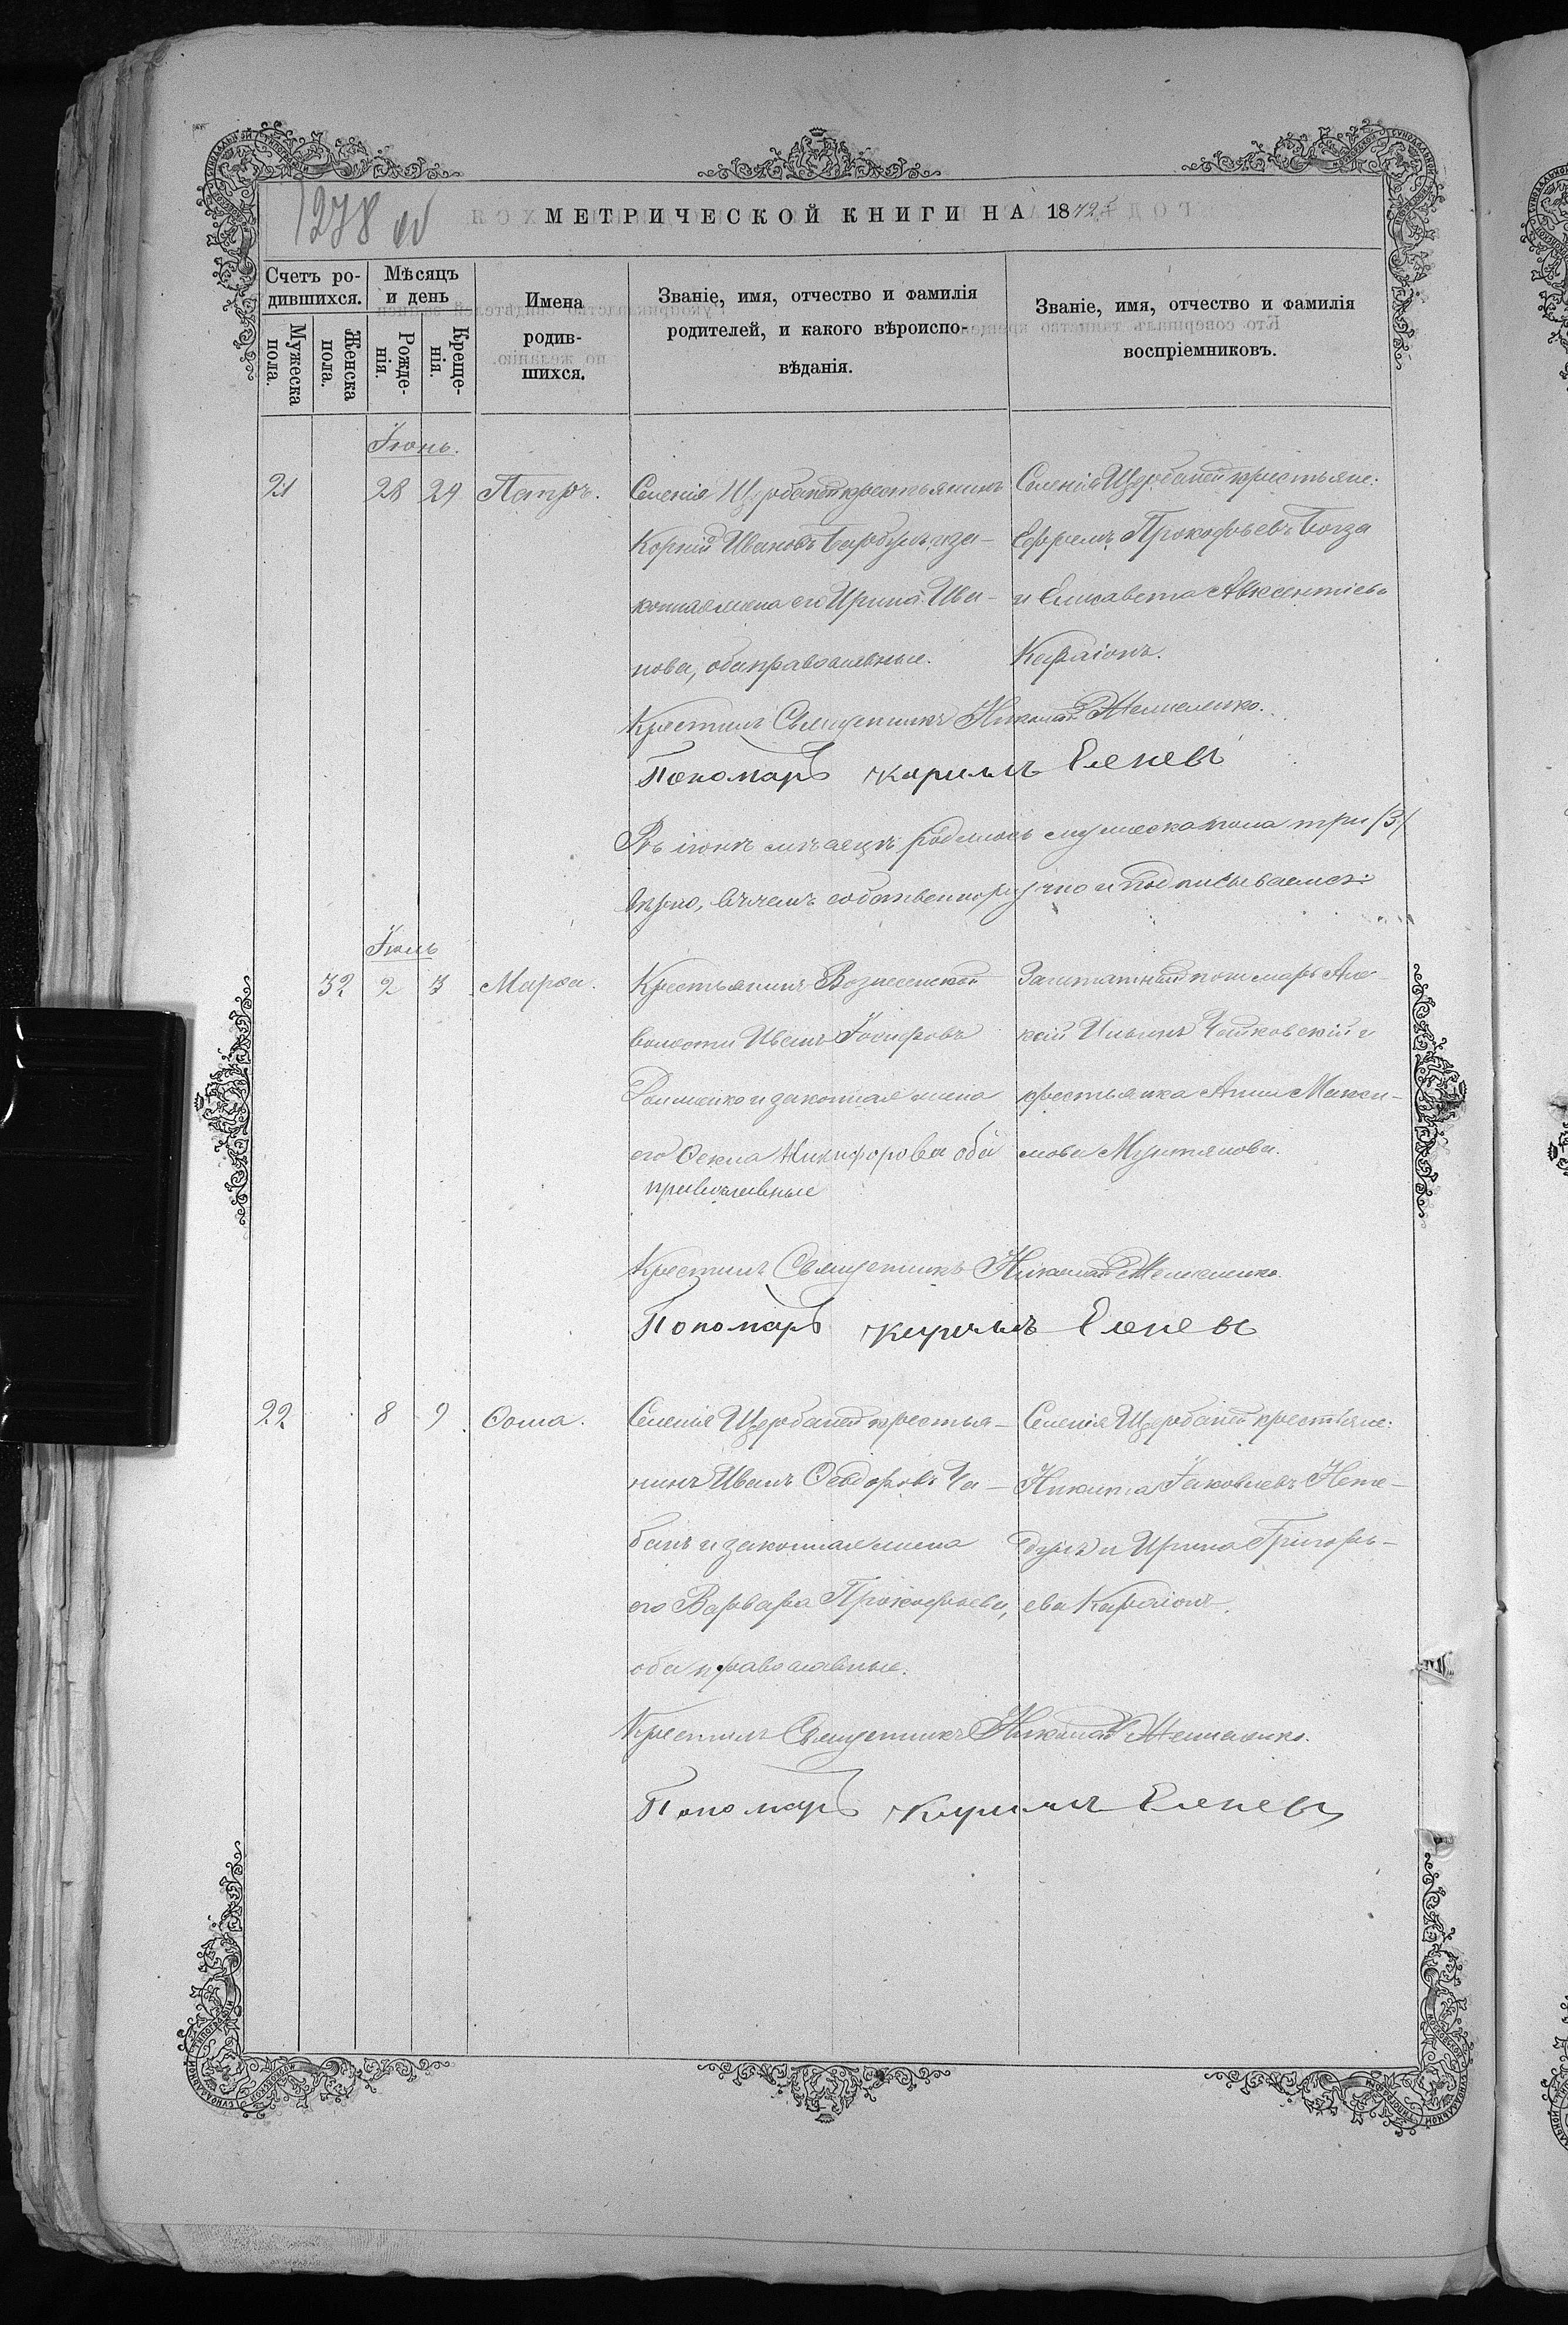 1278 об
МЕТРИЧЕСКОЙ КНИГИ НА 1872
Счетъ родившихся.
Мужеска пола.
Женска пола.
Мѣсяцъ и день
Рожденія.
Крещенія.
Имена родившихся.
Званіе, имя, отчество и фамилія родителей, и какого вѣроисповѣданія.
Званіе, имя, отчество и фамилія воспріемниковъ.
Іюнь.
21 28 29 Петръ.
Селенія Щербаней крестьянинъ
Корній Ивановъ Барбулъ и за-
конная жена его Ирина Ива-
нова, оба православные.
Селенія Щербаней крестьяне:
Ефремъ Прокофьевъ Богза
и Елисавета Авксентіева
Караіонъ.
Крестилъ Священникъ Николай
Пономарь Кирилъ Еленевъ
Въ іюнѣ мѣсяцѣ родилось мужеска пола три /3/
вѣрно, въ чемъ собственноручно и подписываемся:
Іюль
32 2 3 Марѳа.
Крестьянинъ Вознесенской
волости Иванъ Іосифовъ
и законная жена
его Ѳекла Никифорова оба
православные
Заштатный пономарь Але-
ксій Ильинъ Чайковскій и
крестьянка Анна Макси-
мова Мунтянова.
Крестилъ Священникъ Николай
Пономарь Кирилъ Еленевъ
22 8 9 Ѳома.
Селенія Щербаней крестья-
нинъ Иванъ Ѳеодоровъ Ча-
банъ и законная жена
его Варвара Прокофьева,
оба православные.
Селенія Щербаней крестьяне:
Никита Іаковлевъ Неге-
дулъ и Ирина Григорь-
ева Караіонъ.
Крестилъ Священникъ Николай
Пономарь Кирилъ Еленевъ